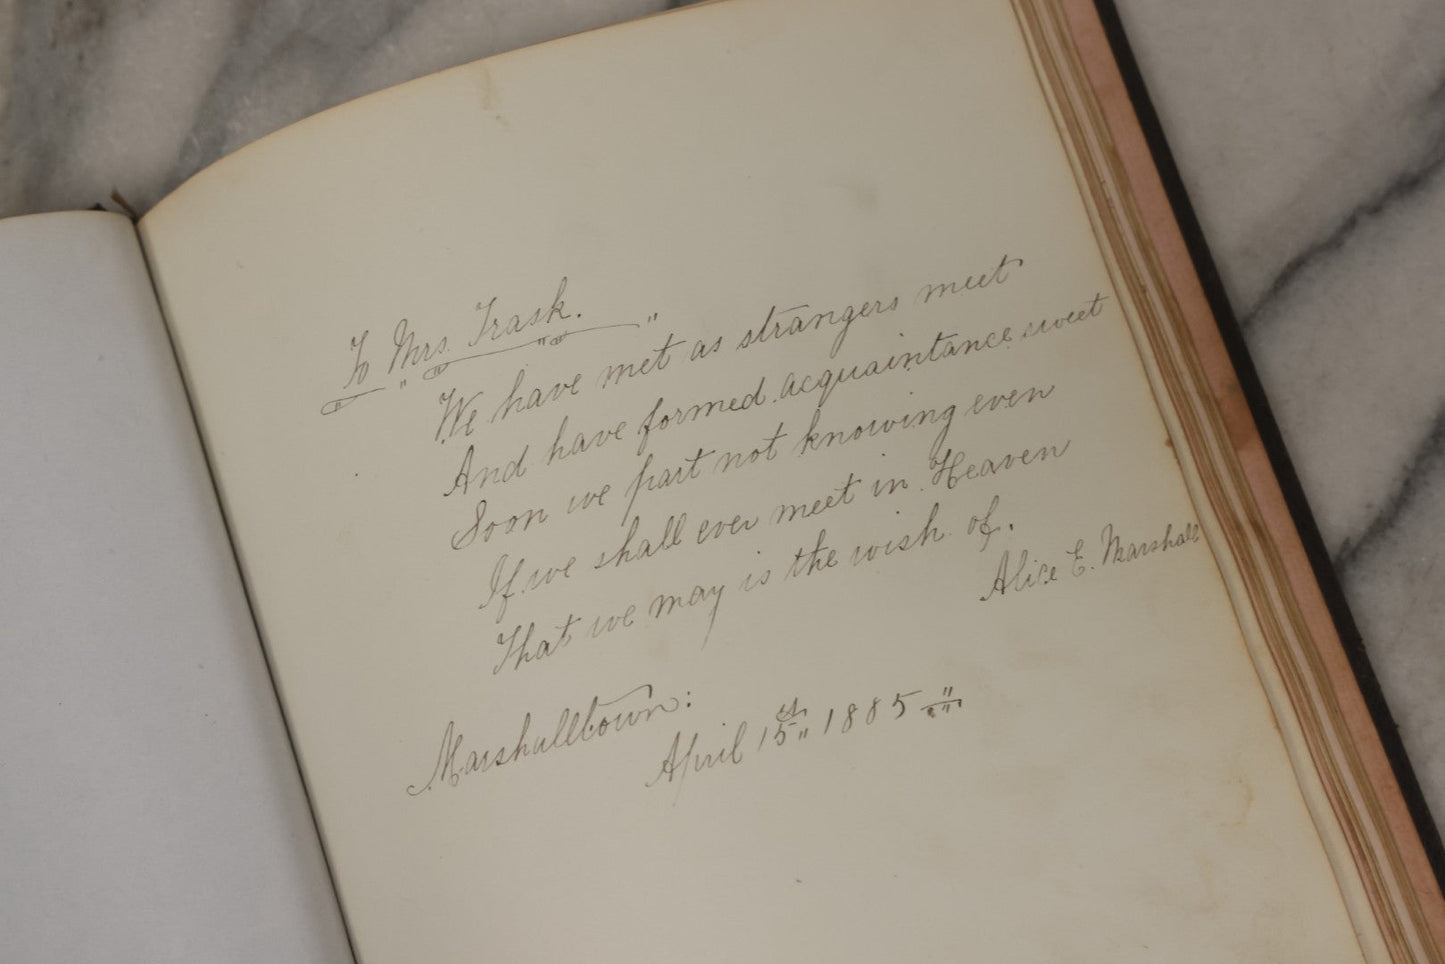 To Mrs. Trask.
We have met as strangers meet
And have formed acquaintance sweet
Soon we part not knowing even
If we shall ever meet in Heaven
That we may is the wish of.
Alice E. Marshall
Marshalltown:
April 15st 1885